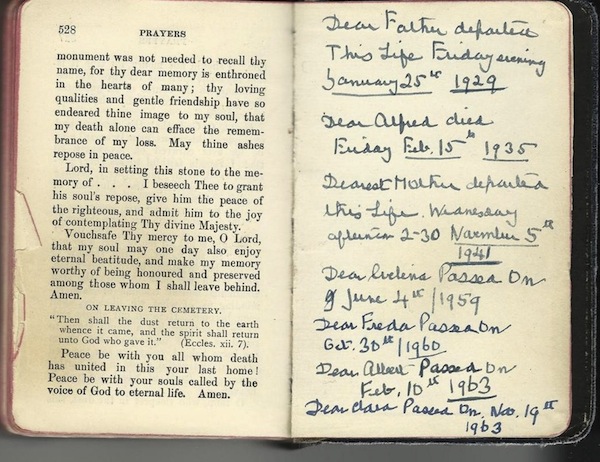 528 PRAYERS
monument was not needed to recall thy
name, for thy dear memory is enthroned
in the hearts of many; thy loving
qualities and gentle friendship have so
endeared thine image to my soul, that
my death alone can efface the remem-
brance of my loss. May thine ashes
repose in peace.
Lord, in setting this stone to the me-
mory of . . . I beseech Thee to grant
his soul's repose, give him the peace of
the righteous, and admit him to the joy
of contemplating Thy divine Majesty.
Vouchsafe Thy mercy to me, O Lord,
that my soul may one day also enjoy
eternal beatitude, and make my memory
worthy of being honoured and preserved
among those whom I shall leave behind.
Amen.
ON LEAVING THE CEMETERY.
"Then shall the dust return to the earth
whence it came, and the spirit shall return
unto God who gave it." (Eccles. xii. 7).
Peace be with you all whom death
has united in this your last home!
Peace be with your souls called by the
voice of God to eternal life. Amen.
Dear Father departed
This Life Friday evening
January 25th 1929
Dear Alfred died
Friday Feb. 15th 1935
Dearest Mother departed
this Life. Wednesday
afternoon 2-30 November 5th
1941
Dear Evelina Passed On
June 4th / 1959
Dear Freda Passed On
Oct. 30th / 1960
Dear Albert Passed On
Feb. 10th 1963
Dear Clara Passed On. Nov. 19th
1963